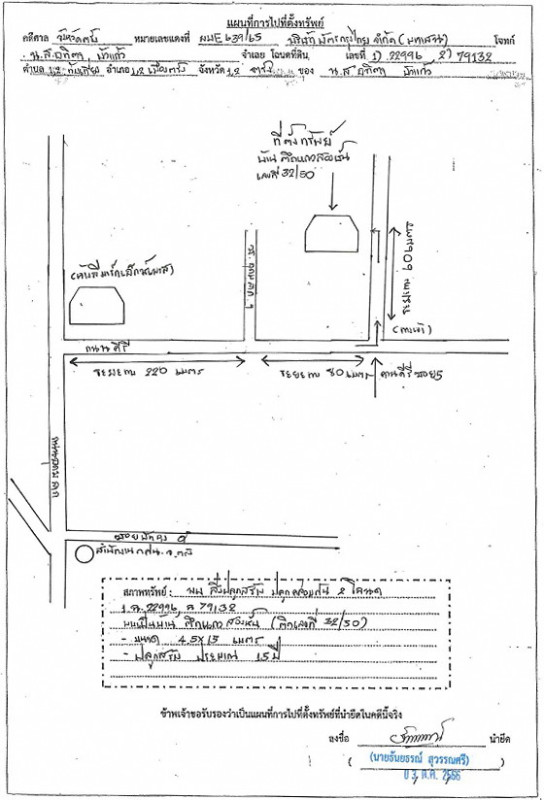 แผนที่การไปที่ตั้งทรัพย์
คดีศาล จังหวัดตรัง หมายเลขแดงที่ ผบE639/65 บริษัทบัตรกรุงไทย จำกัด (มหาชน) โจทก์
น.ส. บัวแก้ว จำเลย โฉนดที่ดิน, เลขที่ 1) 22996 2) 79132
ตำบล 1,2 ทับเที่ยง อำเภอ 1,2 เมืองตรัง จังหวัด 1,2 ตรัง ของ น.ส. บัวแก้ว
ที่ตั้งทรัพย์
บ้าน ตึกแถวสองชั้น
เลขที่ 32/50
ระยะทาง 60 เมตร
(ทางเข้า)
ถนน
ระยะทาง 220 เมตร
ระยะทาง 80 เมตร
ซอย 5
สภาพทรัพย์ : สิ่งปลูกสร้าง ปลูกคร่อมกัน 2 โฉนด
ฉ.22996, ฉ.79132
บนเป็นบ้าน ตึกแถวสองชั้น (ติดเลขที่ 32/50)
- ขนาด 4.5X15 เมตร
- ปลูกสร้าง ประมาณ 15 ปี
ข้าพเจ้าขอรับรองว่าเป็นแผนที่การไปที่ตั้งทรัพย์ที่นำยึดในคดีนี้จริง
ลงชื่อ นำยึด
(นายธันยธรณ์ สุวรรณศรี)
0 3. ต.ค. 2566